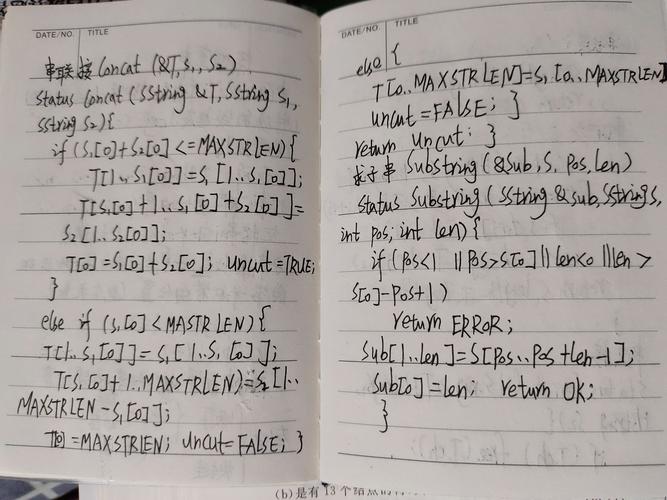 DATE/NO. TITLE
串联接 Concat (&T, S1, S2)
Status Concat (SString &T, SString S1,
SString S2){
if (S1[0]+S2[0]<=MAXSTRLEN){
T[1..S1[0]]=S1[1..S1[0]];
T[S1[0]+1..S1[0]+S2[0]]=
S2[1..S2[0]];
T[0]=S1[0]+S2[0]; uncut=TRUE;
}
else if (S1[0]<MASTRLEN){
T[1..S1[0]]=S1[1..S1[0]];
T[S1[0]+1..MAXSTRLEN)=S2[1..
MAXSTRLEN-S1[0]];
T[0]=MAXSTRLEN; uncut=FALSE; }
DATE/NO. TITLE
else {
T[0..MAXSTRLEN]=S1[0..MAXSTRLEN]
uncut=FALSE; }
return uncut; }
求子串 Substring (&Sub, S, Pos, Len)
Status Substring (SString &sub, SString S,
int pos, int len){
if (Pos<1 ||Pos>S[0]||len<0||len>
S[0]-Pos+1)
return ERROR;
Sub[1..len]=S[Pos..Pos+len-1];
Sub[0]=len; return OK;
}
(b)是有 13 个